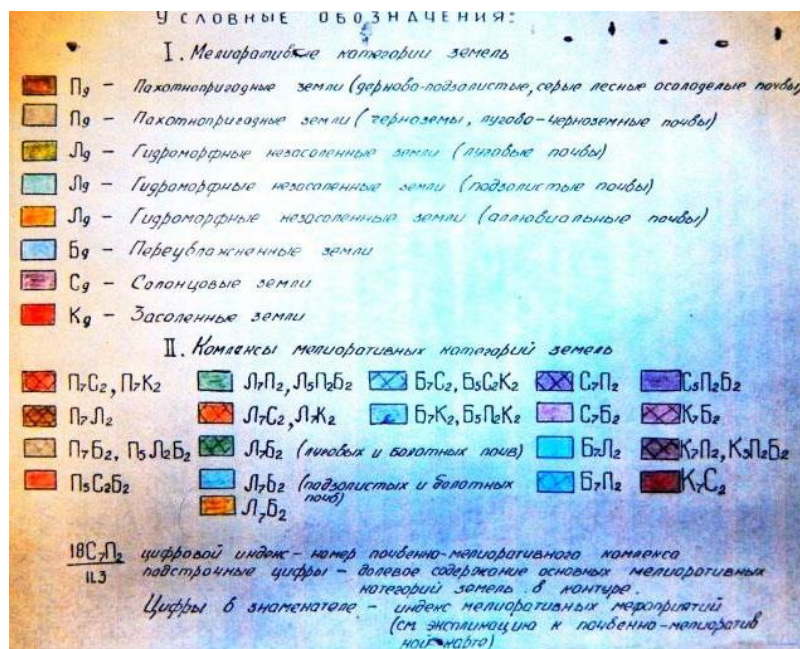 УСЛОВНЫЕ ОБОЗНАЧЕНИЯ:
I. Мелиоративные категории земель
П₉ – Пахотнопригодные земли (дерново-подзолистые, серые лесные осолоделые почвы)
П₉ – Пахотнопригодные земли (черноземы, лугово-черноземные почвы)
Л₉ – Гидроморфные незасоленные земли (луговые почвы)
Л₉ – Гидроморфные незасоленные земли (подзолистые почвы)
Л₉ – Гидроморфные незасоленные земли (аллювиальные почвы)
Б₉ – Переувлажненные земли
С₉ – Солонцовые земли
К₉ – Засоленные земли
II. Комплексы мелиоративных категорий земель
П₇С₂, П₇К₂ Л₇П₂, Л₅П₂Б₂ Б₇С₂, Б₅С₂К₂ С₇П₂ С₅П₂Б₂
П₇Л₂ Л₇С₂, Л₇К₂ Б₇К₂, Б₅П₂К₂ С₇Б₂ К₇Б₂
П₇Б₂, П₅Л₂Б₂ Л₇Б₂ (луговых и болотных почв) Б₇Л₂ К₇П₂, К₅П₂Б₂
П₅С₂Б₂ Л₇Б₂ (подзолистых и болотных почв) Б₇П₂ К₇С₂
Л₇Б₂
18С₇П₂ цифровой индекс – номер почвенно-мелиоративного комплекса
II.3 подстрочные цифры – долевое содержание основных мелиоративных
категорий земель в контуре.
Цифры в знаменателе – индекс мелиоративных мероприятий
(см экспликацию к почвенно-мелиоратив
ной карте)